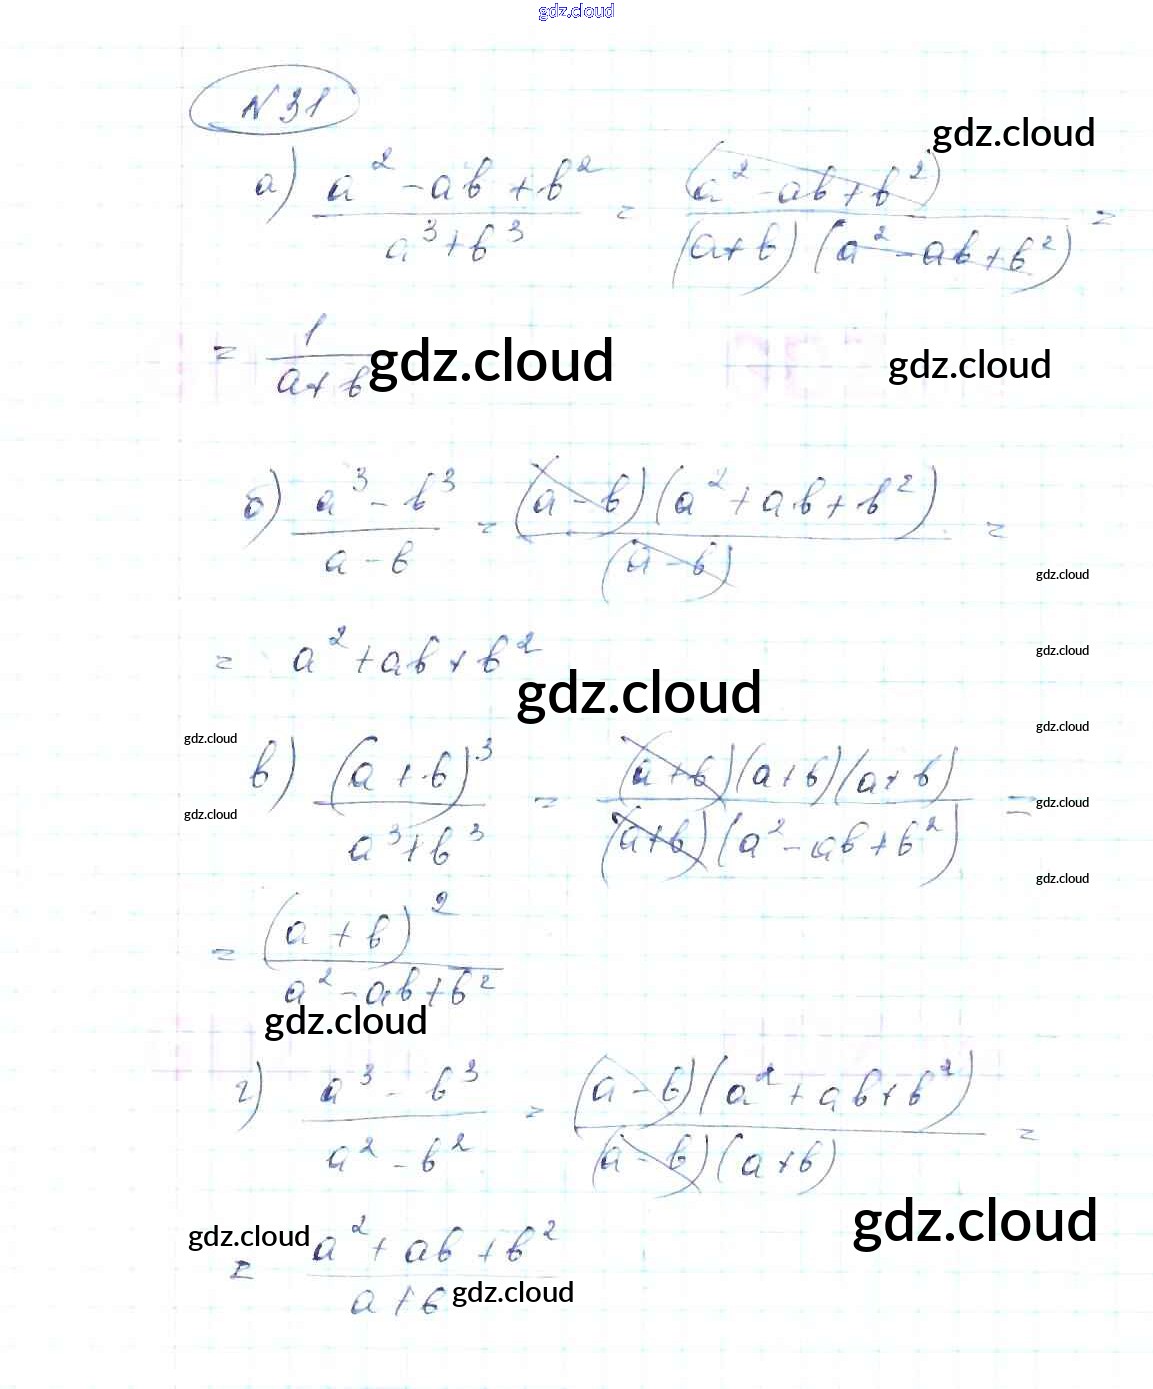 gdz.cloud
N 31
gdz.cloud
а) (a² - ab + b²)/(a³ + b³) = (a² - ab + b²)/((a+b)(a² - ab + b²)) =
= 1/(a+b) gdz.cloud gdz.cloud
б) (a³ - b³)/(a - b) = ((a - b)(a² + ab + b²))/(a - b) =
gdz.cloud
= a² + ab + b² gdz.cloud
gdz.cloud
gdz.cloud gdz.cloud
в) (a + b)³/(a³ + b³) = ((a+b)(a+b)(a+b))/((a+b)(a² - ab + b²)) =
gdz.cloud gdz.cloud
gdz.cloud
= (a + b)²/(a² - ab + b²)
gdz.cloud
г) (a³ - b³)/(a² - b²) = ((a - b)(a² + ab + b²))/((a - b)(a + b)) =
gdz.cloud gdz.cloud
= (a² + ab + b²)/(a + b) gdz.cloud